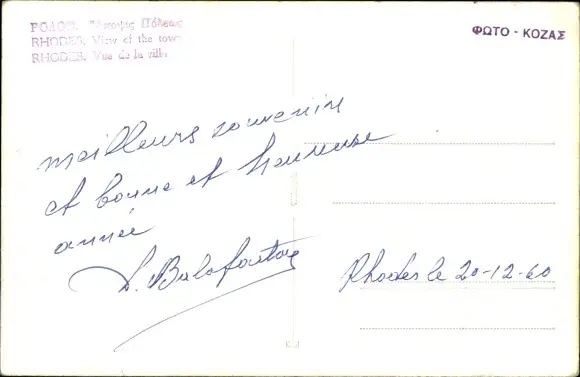 ΡΟΔΟΣ. Ἄποψις Πόλεως
RHODES. View of the town
RHODES. Vue de la ville
ΦΩΤΟ - ΚΟΖΑΣ
meilleurs souvenirs
et bonne et heureuse
année
Rhodes le 20-12-60